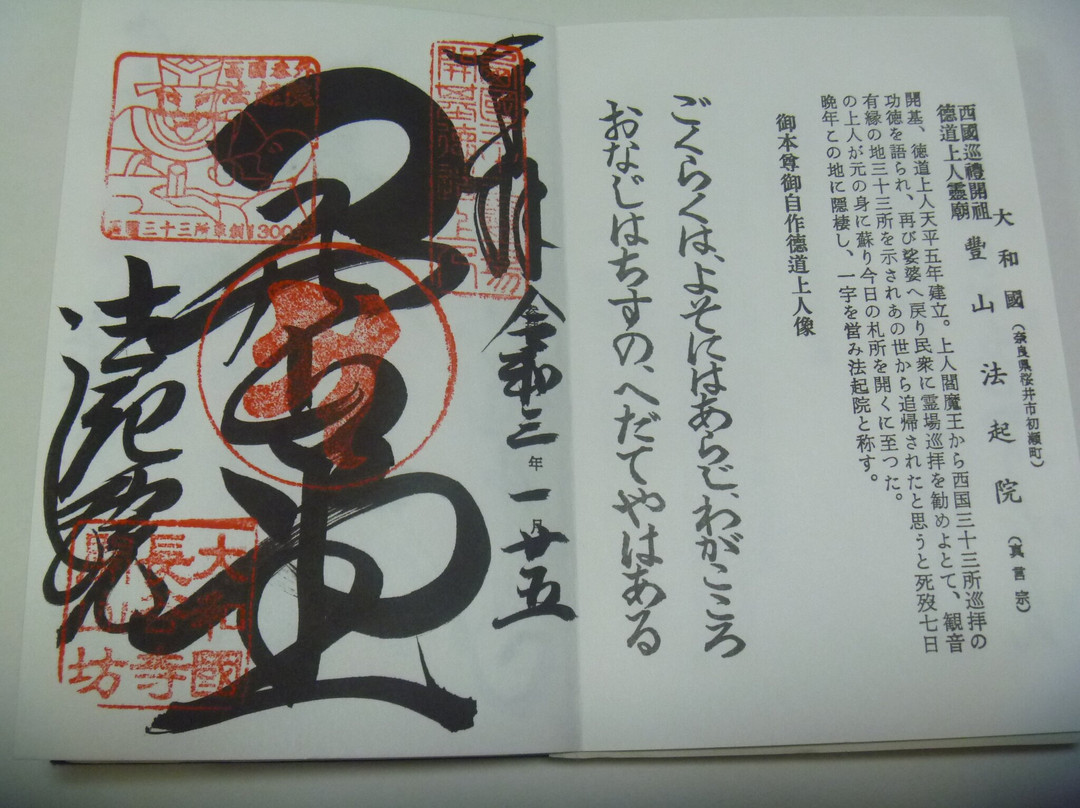 大和國
(奈良県桜井市初瀬町)
豊山 法起院
(真言宗)
西國巡禮開祖
徳道上人靈廟
開基、徳道上人天平五年建立。上人閻魔王から西国三十三所巡拝の
功徳を語られ、再び娑婆へ戻り民衆に霊場巡拝を勧めよとて、観音
有縁の地三十三所を示されあの世から追帰されたと思うと死歿七日
の上人が元の身に蘇り今日の札所を開くに至つた。
晩年この地に隠棲し、一字を営み法起院と称す。
御本尊御自作徳道上人像
ごくらくは、よそにはあらじ、わがこころ
おなじはちすの、へだてやはある
奉拝 令和三年一月廿五
法起院
三十三所草創1300年
大和國
長谷寺
開山坊